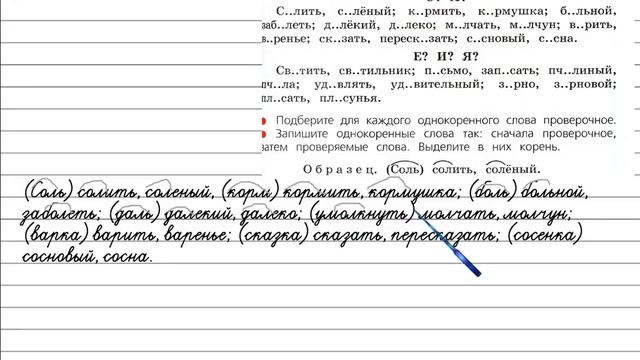 С..лить, с..лёный; к..рмить, к..рмушка; б..льной,
заб..леть; д..лёкий, д..леко; м..лчать, м..лчун; в..рить,
в..ренье; ск..зать, переск..зать; с..сновый, с..сна.
Е? И? Я?
Св..тить, св..тильник; п..сьмо, зап..сать; пч..линый,
пч..ла; уд..влять, уд..вительный; з..рно, з..рновой;
пл..сать, пл..сунья.
Подберите для каждого однокоренного слова проверочное.
Запишите однокоренные слова так: сначала проверочное,
затем проверяемые слова. Выделите в них корень.
Образец. (Соль) солить, солёный.
(Соль) солить, соленый, (корм) кормить, кормушка; (боль) больной,
заболеть; (даль) далекий, далеко; (умолкнуть) молчать, молчун;
(варка) варить, варенье; (сказка) сказать, пересказать; (сосенка)
сосновый, сосна.